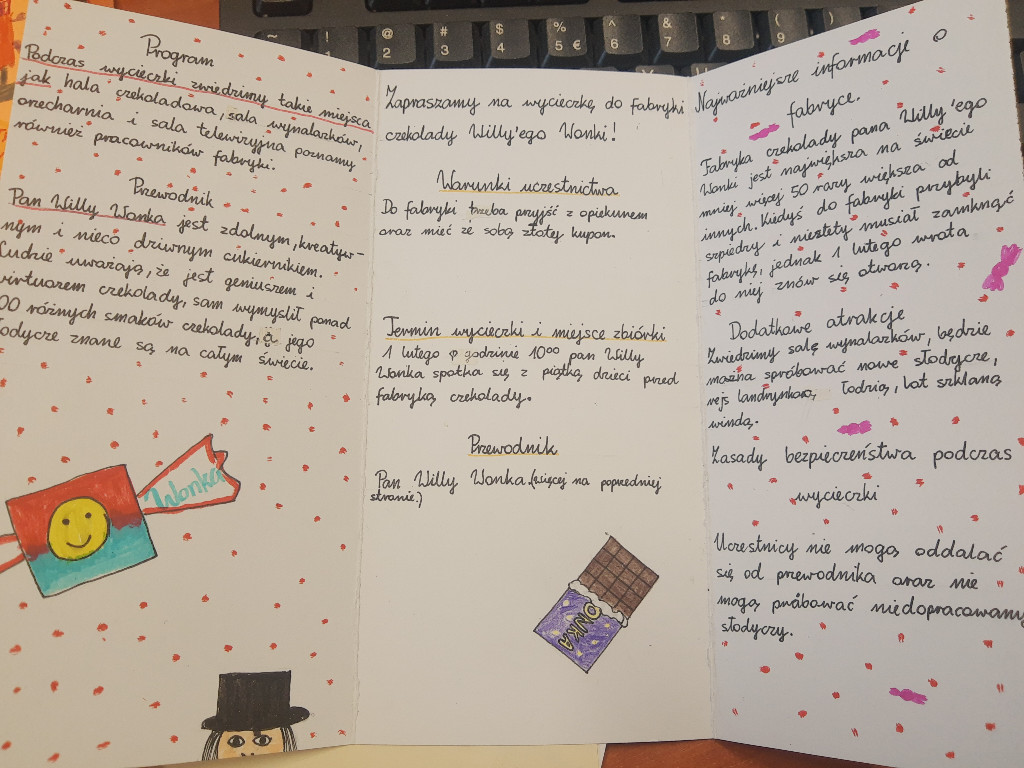 Program
Podczas wycieczki zwiedzimy takie miejsca
jak hala czekoladowa, sala wynalazków,
orzecharnia i sala telewizyjna poznamy
również pracowników fabryki.
Przewodnik
Pan Willy Wonka jest zdolnym, kreatyw-
nym i nieco dziwnym cukiernikiem.
Ludzie uważają, że jest geniuszem i
wirtuozem czekolady, sam wymyślił ponad
00 różnych smaków czekolady, a jego
łodycze znane są na całym świecie.
Wonka
Zapraszamy na wycieczkę do fabryki
czekolady Willy'ego Wonki!
Warunki uczestnictwa
Do fabryki trzeba przyjść z opiekunem
oraz mieć ze sobą złoty kupon.
Termin wycieczki i miejsce zbiórki
1 lutego o godzinie 10⁰⁰ pan Willy
Wonka spotka się z piątką dzieci przed
fabryką czekolady.
Przewodnik
Pan Willy Wonka.(więcej na poprzedniej
stronie.)
ONKA
Najważniejsze informacje o
fabryce.
Fabryka czekolady pana Willy'ego
Wonki jest największa na świecie
mniej więcej 50 razy większa od
innych. Kiedyś do fabryki przybyli
szpiedzy i niestety musiał zamknąć
fabrykę, jednak 1 lutego wrota
do niej znów się otworzą.
Dodatkowe atrakcje
Zwiedzimy salę wynalazków, będzie
można spróbować nowe słodycze,
rejs landrynkową łodzią, lot szklaną
windą.
Zasady bezpieczeństwa podczas
wycieczki
Uczestnicy nie mogą oddalać
się od przewodnika oraz nie
mogą próbować niedopracowany
słodyczy.
~
! 1
@ 2
# 3
$ 4
% 5 €
^ 6
& 7
* 8
( 9
)